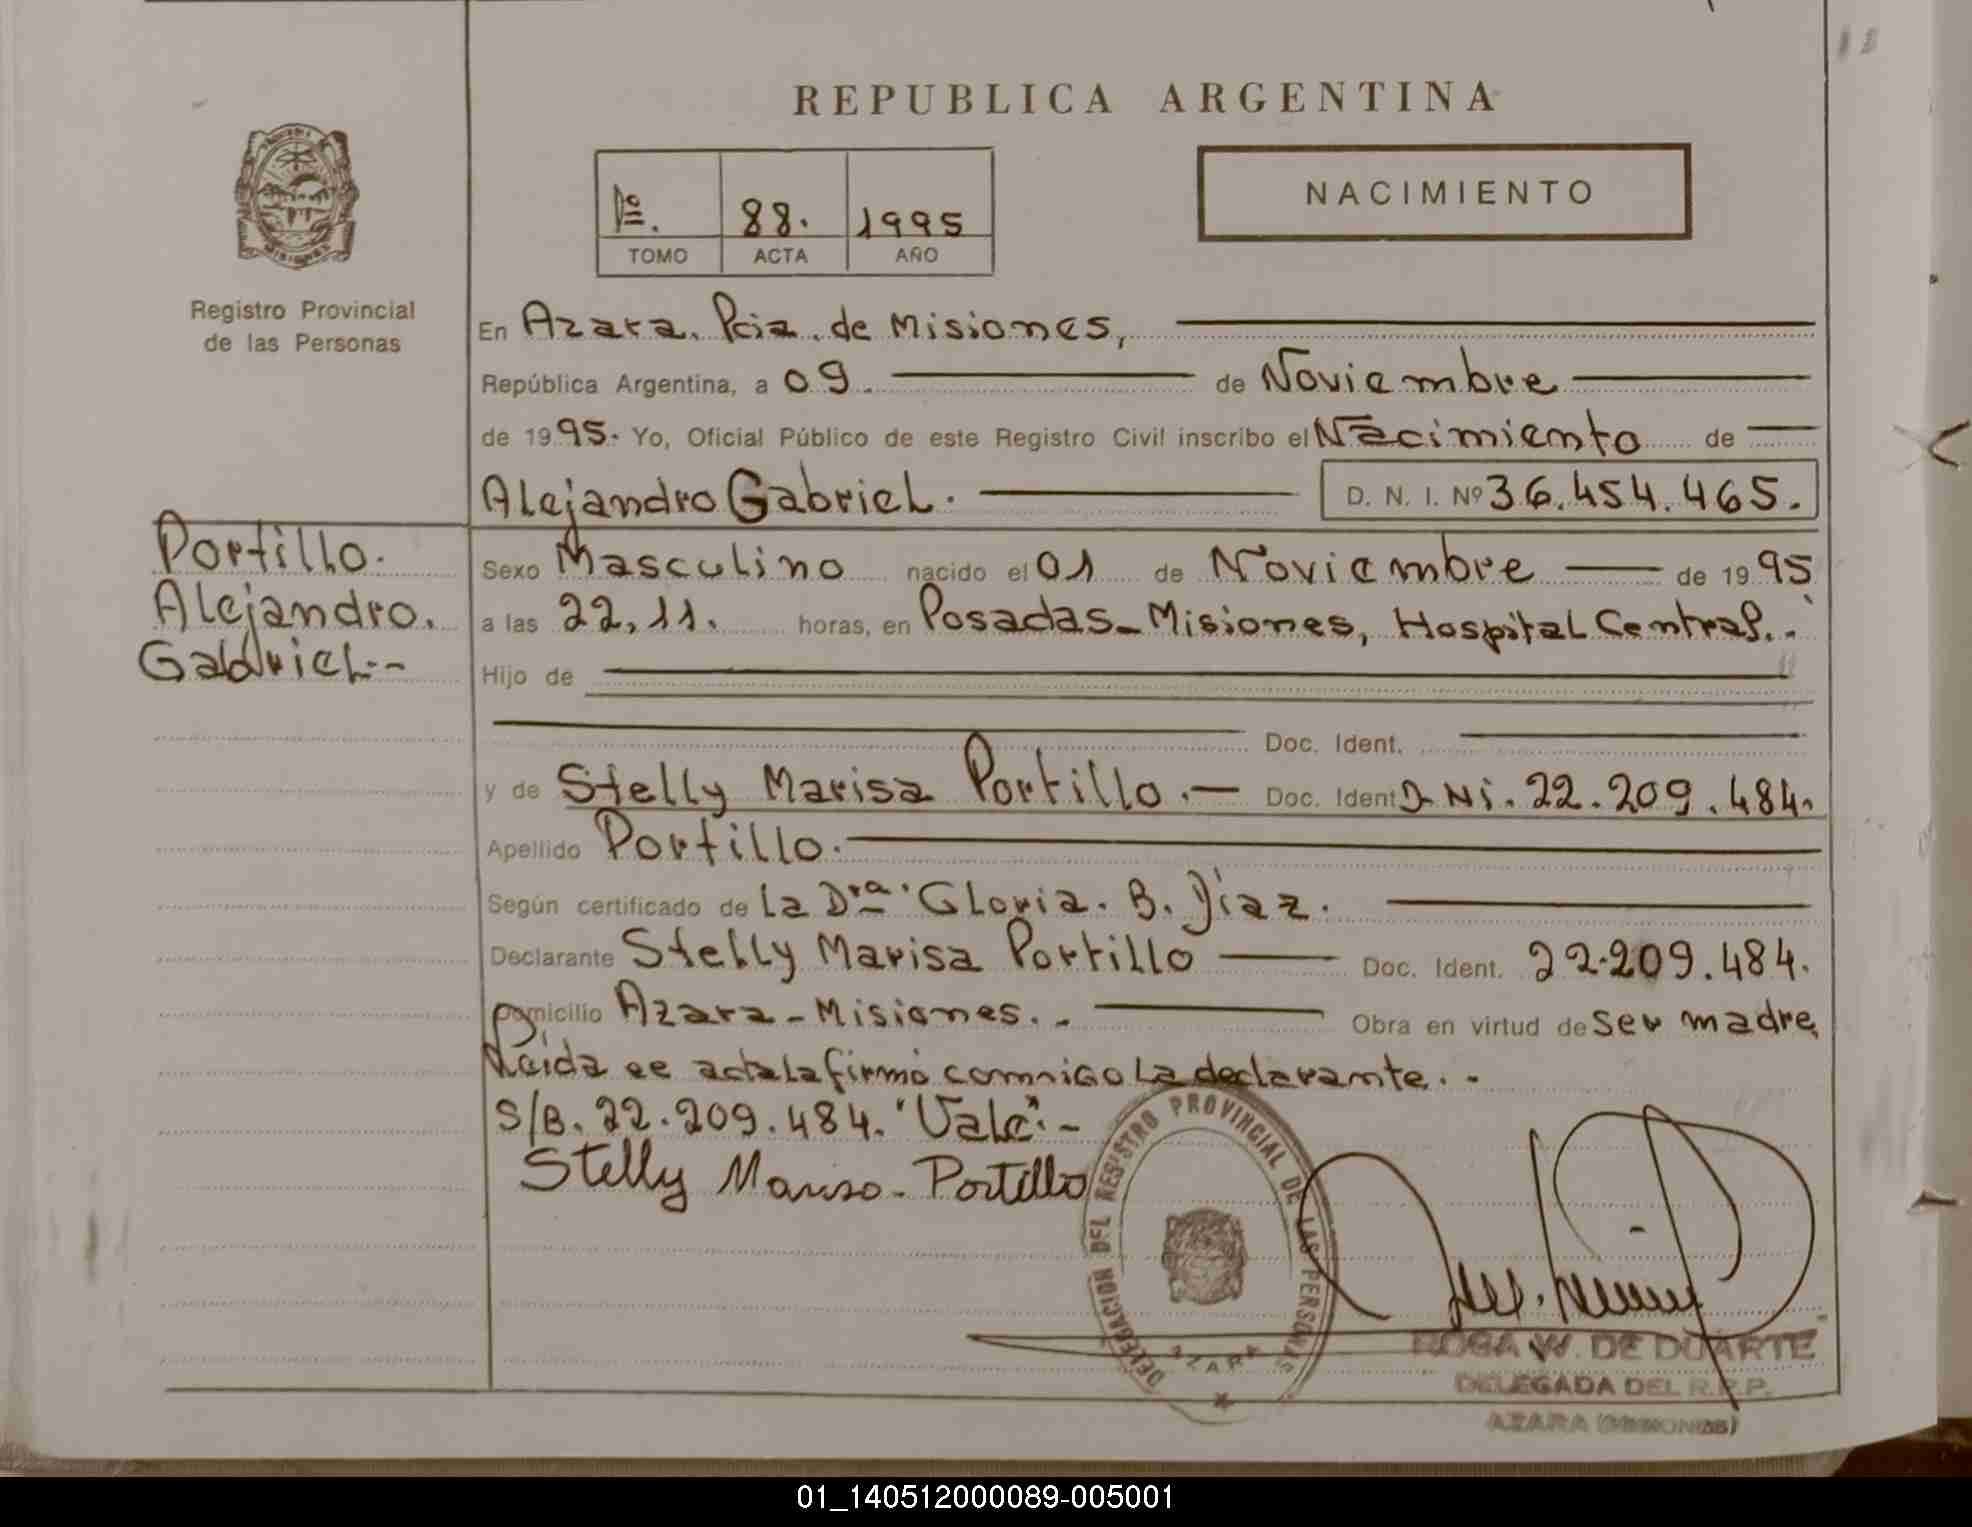 REPUBLICA ARGENTINA
NACIMIENTO
1º. 88. 1995
TOMO ACTA AÑO
Registro Provincial
de las Personas
En Azara. Pcia. de Misiones,
República Argentina, a 09. de Noviembre
de 1995. Yo, Oficial Público de este Registro Civil inscribo el Nacimiento de
Alejandro Gabriel. D. N. I. Nº 36.454.465.
Portillo.
Alejandro.
Gabriel.-
Sexo Masculino nacido el 01 de Noviembre de 1995
a las 22,11. horas, en Posadas-Misiones, Hospital Central.-
Hijo de
Doc. Ident.
y de Stelly Marisa Portillo.- Doc. Ident DNi. 22.209.484.
Apellido Portillo.
Según certificado de la Dra. Gloria. B. Díaz.
Declarante Stelly Marisa Portillo Doc. Ident. 22.209.484.
Domicilio Azara-Misiones.- Obra en virtud de ser madre,
Leida ee acta la firmó commigo la declarante.-
S/B. 22.209.484. "Vale".-
Stelly Marisa. Portillo
DELEGACION DEL REGISTRO PROVINCIAL DE LAS PERSONAS
AZARA
ROSA W. DE DUARTE
DELEGADA DEL R.P.P.
AZARA (MISIONES)
01_140512000089-005001